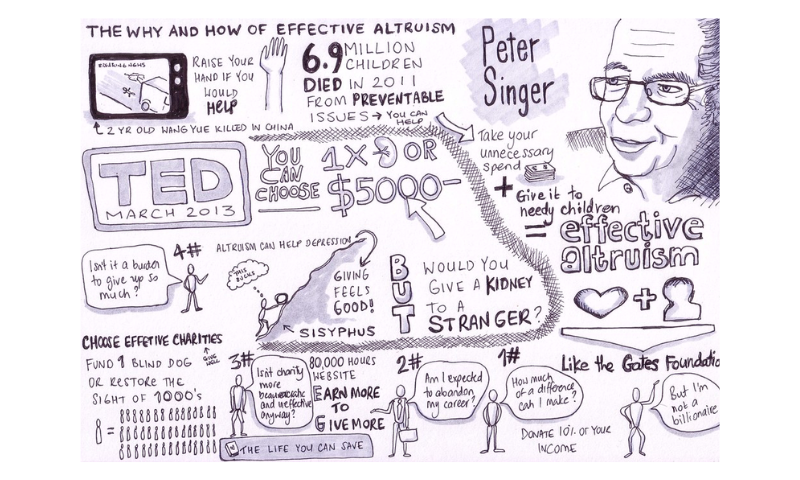 THE WHY AND HOW OF EFFECTIVE ALTRUISM
RAISE YOUR
HAND IF YOU
WOULD
HELP
2 YR OLD WANG YUE KILLED IN CHINA
6.9 MILLION
CHILDREN
DIED IN 2011
FROM PREVENTABLE
ISSUES → YOU CAN
HELP
Peter
Singer
Take your
unnecessary
spend
+ Give it to
needy children
= effective
altruism
+
TED
MARCH 2013
YOU
CAN
CHOOSE
1X OR
$5000-
4#
Isn't it a burden
to give up so
much?
ALTRUISM CAN HELP DEPRESSION
THIS SUCKS
GIVING
FEELS
GOOD!
SISYPHUS
BUT
WOULD YOU
GIVE A KIDNEY
TO A
STRANGER?
CHOOSE EFFETIVE CHARITIES
GIVE WELL
FUND 1 BLIND DOG
OR RESTORE THE
SIGHT OF 1000's
=
3#
Isn't charity
more
and ineffective
anyway?
80,000 HOURS
WEBSITE
EARN MORE
TO
GIVE MORE
THE LIFE YOU CAN SAVE
2#
Am I expected
to abandon
my career?
1#
How much
of a difference
can I make?
DONATE 10% OF YOUR
INCOME
Like the Gates Foundatio
But I'm
not a
billionaire